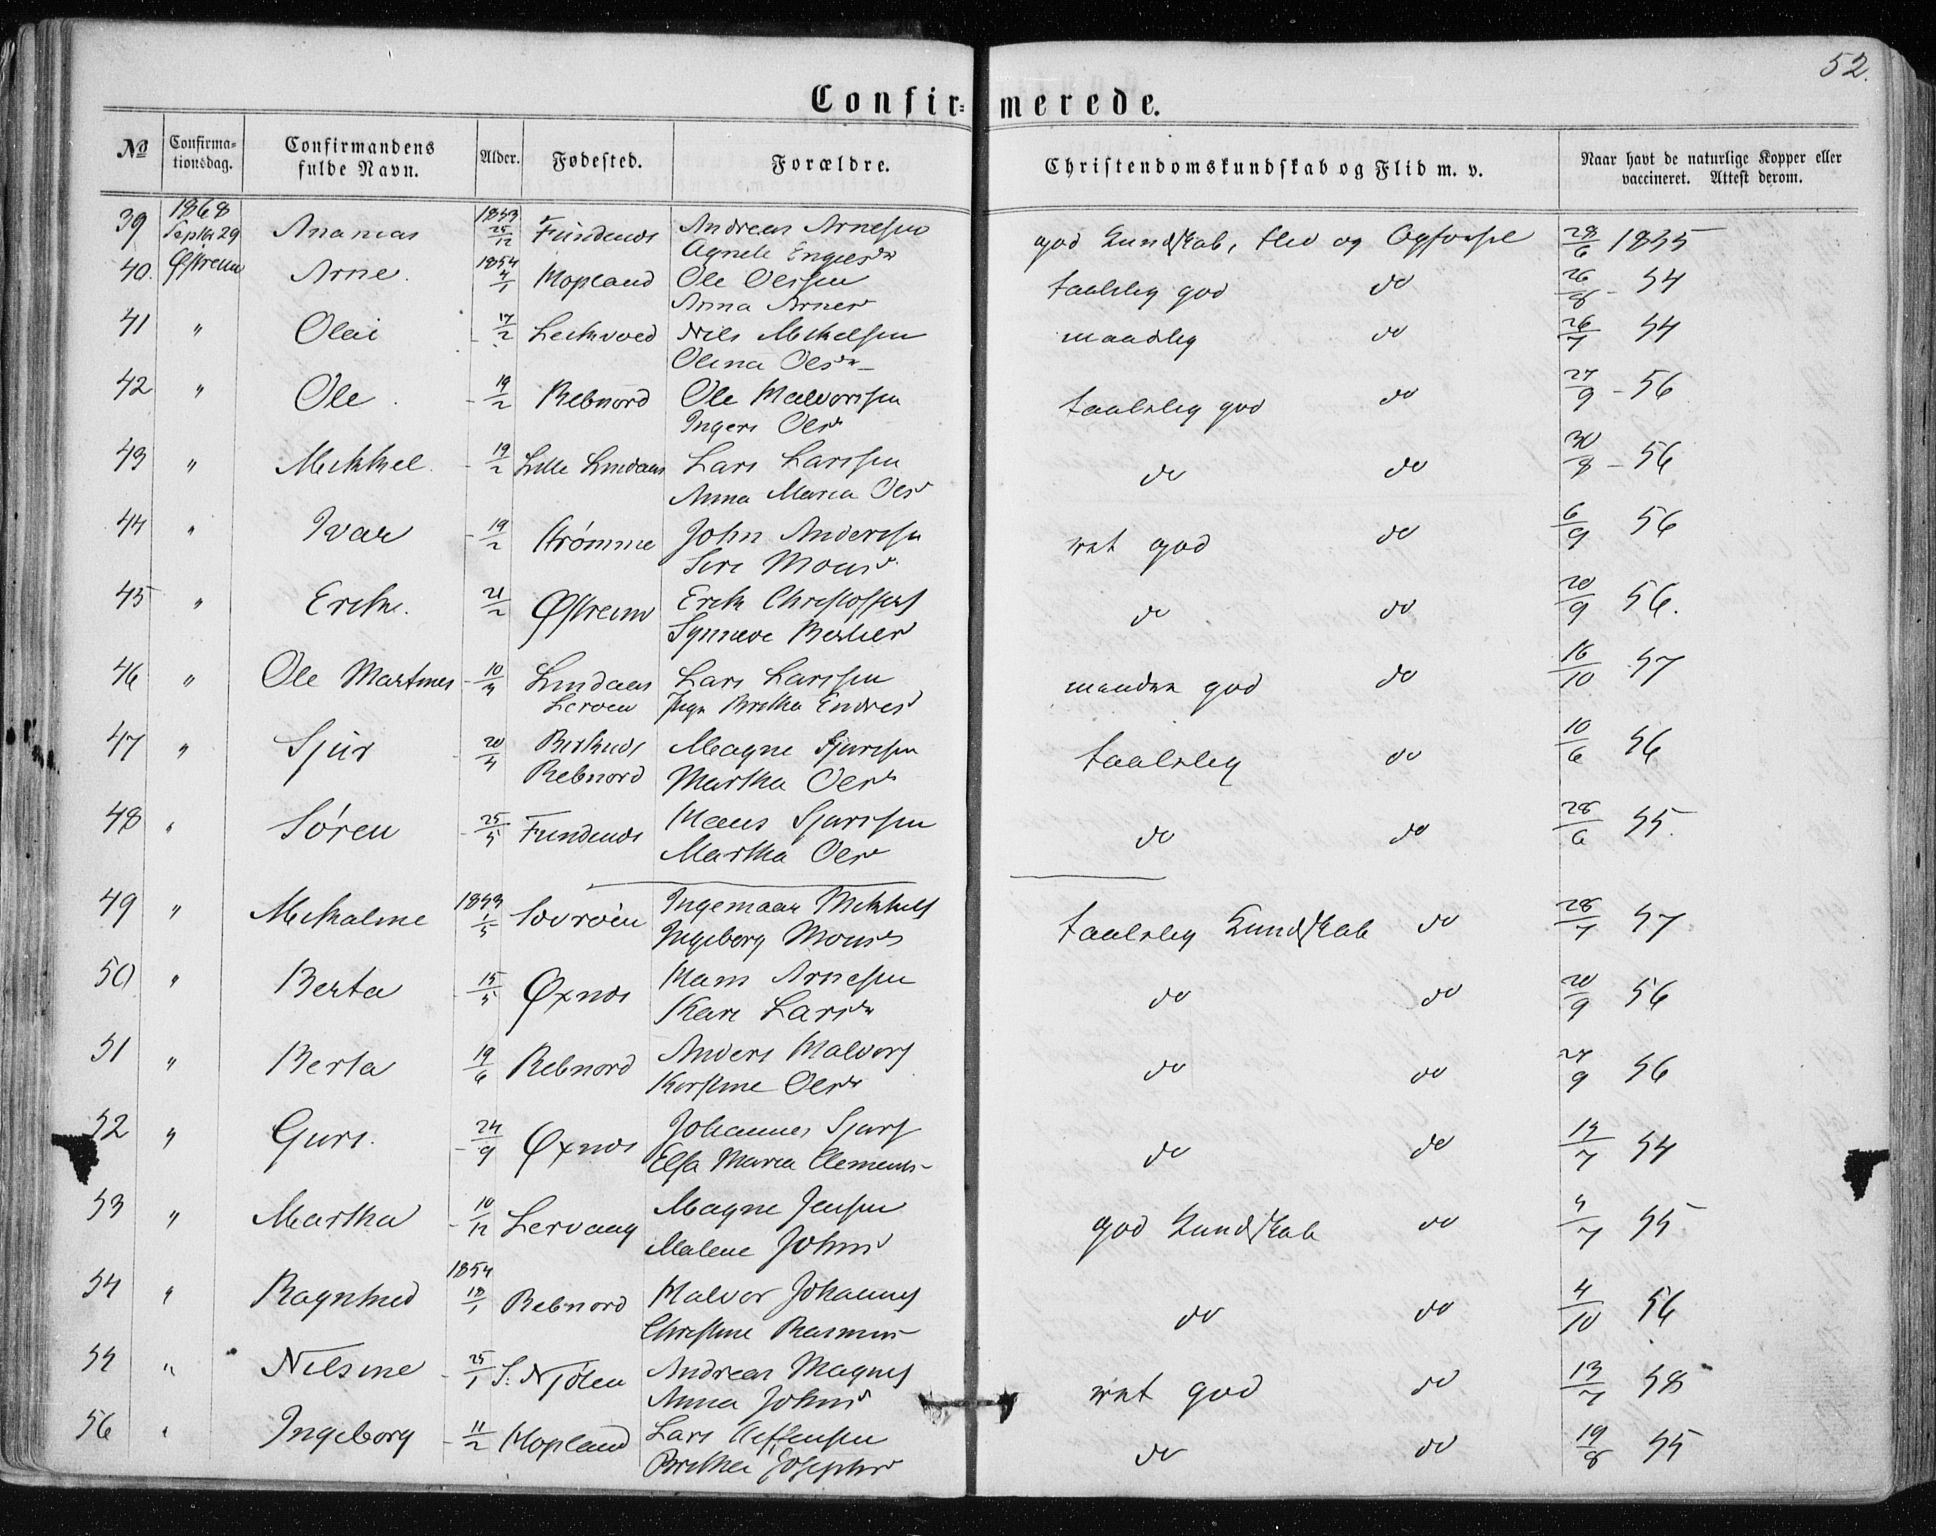 52.
Confir- merede.
№ Confirma-tionsdag. Confirmandens fulde Navn. Alder. Fødested. Forældre. Christendomskundskab og Flid m. v. Naar havt de naturlige Kopper eller vaccineret. Attest derom.
39 1868 Septbr 29 Østreim Ananias 1853 25/12 Andreas Arnesen god Kundskab, Flid og Opførsel 28/6 1855
Agnete
40. Arne. 1854 4/1 Hopland Ole Olessen taalelig god do 26/8 - 54
Anna Arnesd
41 " Olai - 17/2 Nils Mikkelsen maadelig do 26/7 54
Olina Olesdr
42 " Ole - 19/2 Rebnord Ole Halvorssen taalelig god do 27/9 - 56
Ingeri Olesd
43 " Mikkel. - 19/2 Lille Lindaas Lars Larssen do do 30/8 - 56
Anna Maria Olesd
44 " Ivar - 19/2 Strømme John Anderssen vel god do 6/9 56
Siri Monsd.
45 " Erik. 21/2 Østreim Erik Christoffers do do 20/9 56.
Synneve
46 " Ole Martines - 10/4 Lindaas Lars Larssen god do 16/10 57
Leroen Inga Brithe Endresd
47 " Sjur - 20/4 Magne Sjurssen taalelig do 10/6 56
Rebnord Martha Olesd
48 " Søren - 25/5 Hans Sjurssen do do 28/6 55.
Martha Olesd
49 " Mikaline 1853 1/5 Ingemaar Mikkels taalelig Kundskab do 28/7 57
Ingeborg Monsd
50 " Berta - 15/5 Øxnes Hans Arnesen do do 20/9 56
Kari Larsdr
51 " Berta 19/6 Rebnord Anders Halvors do do 27/9 56
Kirstine Olesd
52 " Guri. - 24/9 Øxnes Johannes Sjurs do do 13/7 54
Elsa Maria Clemens-
53 " Martha - 10/12 Lervaag Magne Jensen god Kundskab do 4/7 55
Malene Johnsd
54 " Ragnhild 1854 18/1 Rebnord Halvor Johannes do do 4/10 56
Christine Rasmus-
55 " Nilsine - 25/1 Andreas Magnes vel god do 13/7 58
Anna Johnsd
56 " Ingeborg - 11/2 Hopland Lars do do 19/8 55
Brithe Josephsd